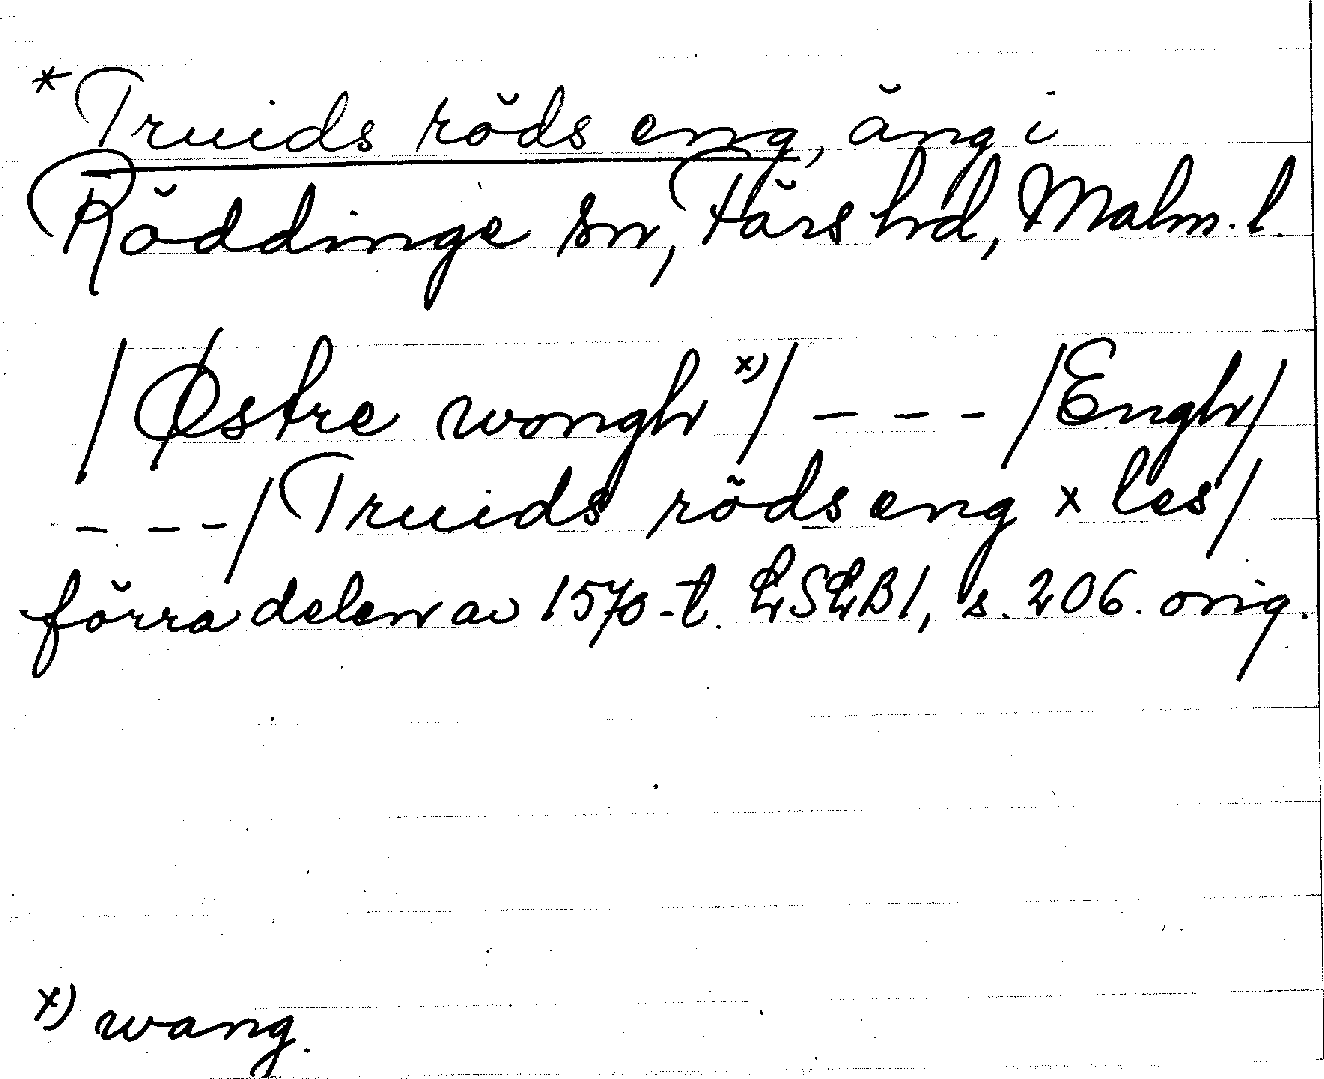 * Truids röds eng, äng i
Röddinge sn, Färs hd, Malm. l.
/Østre wongh x)/ - - - /Engh/
- - - /Truids röds eng x les/
förra delen av 1570-t. LSLB1, s. 206. orig.
x) wang.